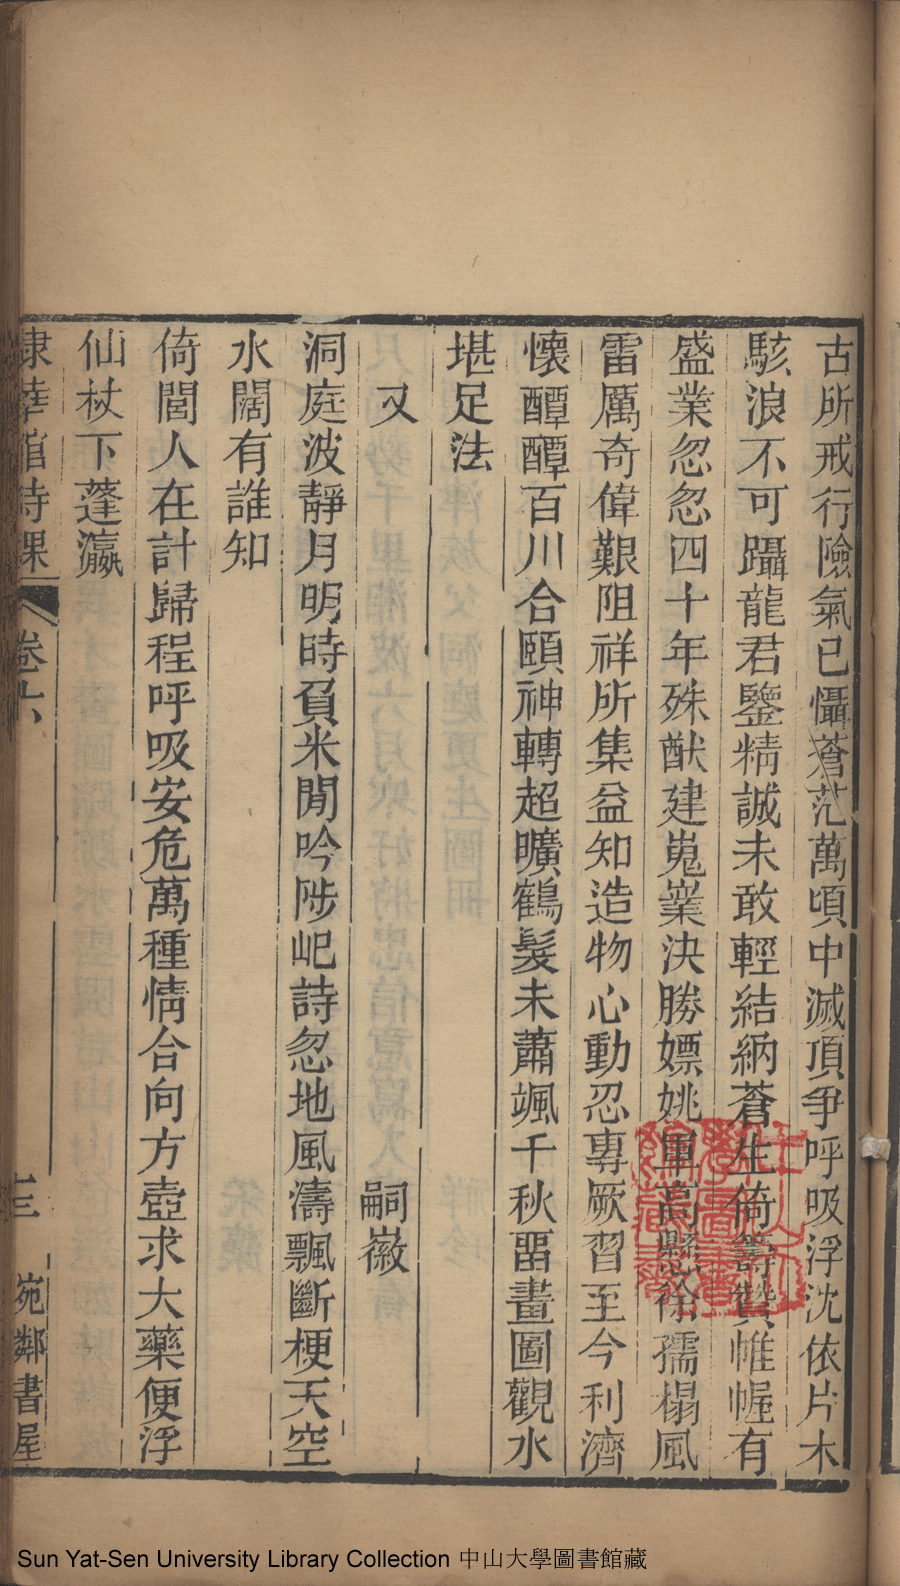 古所戒行險氣已懾蒼茫萬頃中滅頂爭呼吸浮沈依片木
駭浪不可躡龍君鑒精誠未敢輕結納蒼生倚籌贊帷幄有
盛業忽忽四十年殊猷建嵬嶪決勝嫖姚軍高懸徐孺榻風
雷厲奇偉艱阻祥所集益知造物心動忍專厥習至今利濟
懷醰醰百川合頤神轉超曠鶴髮未蕭颯千秋畱畫圖觀水
堪足法
又 嗣徽
洞庭波靜月明時負米閒吟陟屺詩忽地風濤飄斷梗天空
水闊有誰知
倚閭人在計歸程呼吸安危萬種情合向方壺求大藥便浮
仙杖下蓬瀛
棣華館詩課 卷十六 十三 宛鄰書屋
Sun Yat-Sen University Library Collection 中山大學圖書館藏